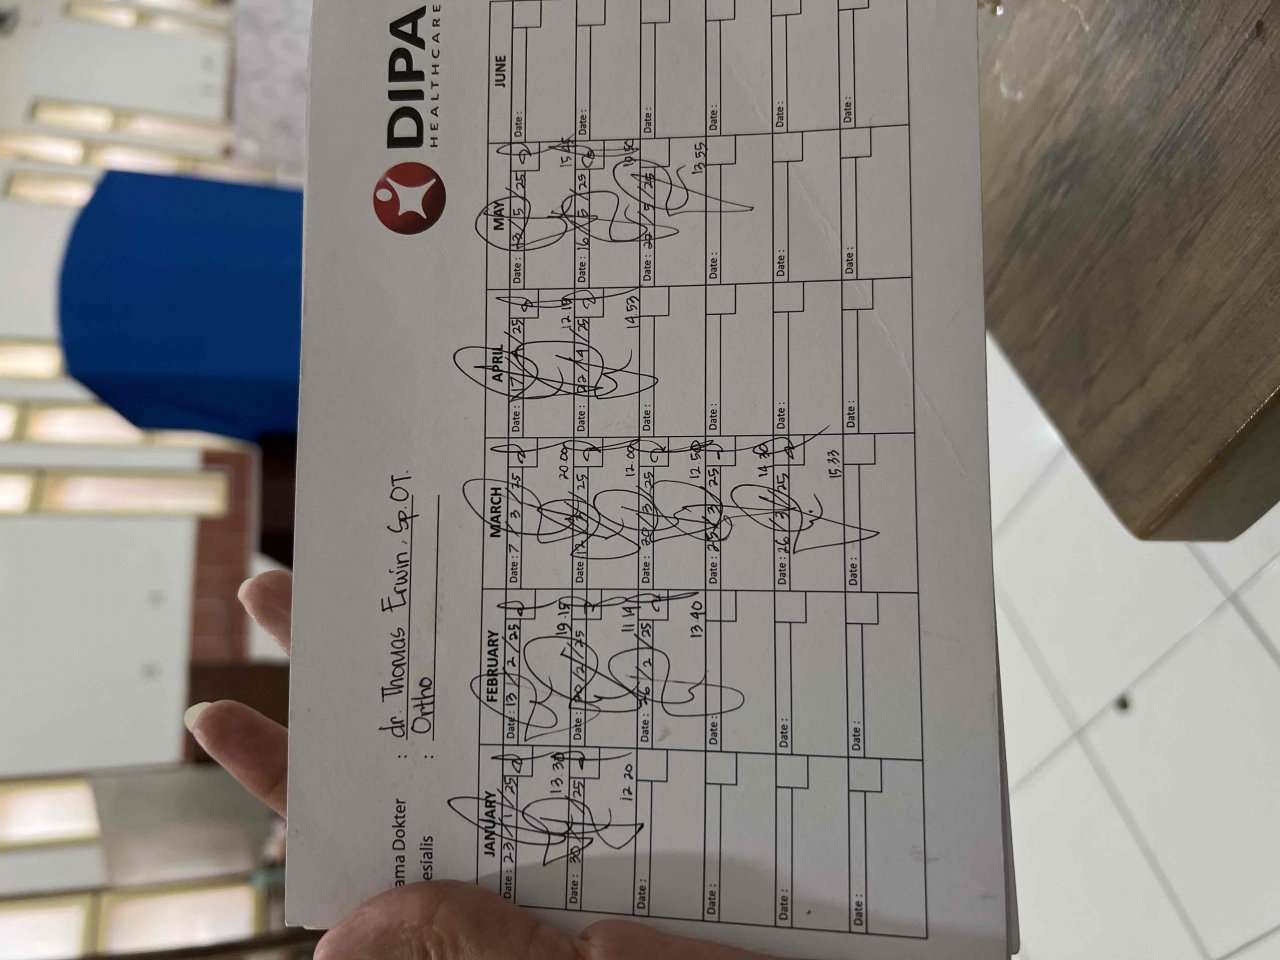 DIPA
HEALTHCARE
ama Dokter : dr. Thomas Erwin, Sp.OT.
esialis : Ortho
JANUARY FEBRUARY MARCH APRIL MAY JUNE
Date : 23 / 1 / 25 Date : 13 / 2 / 25 Date : 7 / 3 / 25 Date : 17 / 4 / 25 Date : / 5 / 25 Date :
13.30 19.15 20.00 12.19 15.45
Date : 30 / 25 Date : 20 / 2 / 25 Date : 12 / 3 / 25 Date : 22 / 4 / 25 Date : 16 / 5 / 25 Date :
12 20 11 14 12 00 14 53
Date : Date : 26 / 2 / 25 Date : 20 / 3 / 25 Date : Date : 22 / 5 / 25 Date :
13.40 12 50 13 55
Date : Date : Date : 25 / 3 / 25 Date : Date : Date :
14 30
Date : Date : Date : 26 / 3 / 25 Date : Date : Date :
15.33
Date : Date : Date : Date : Date : Date :